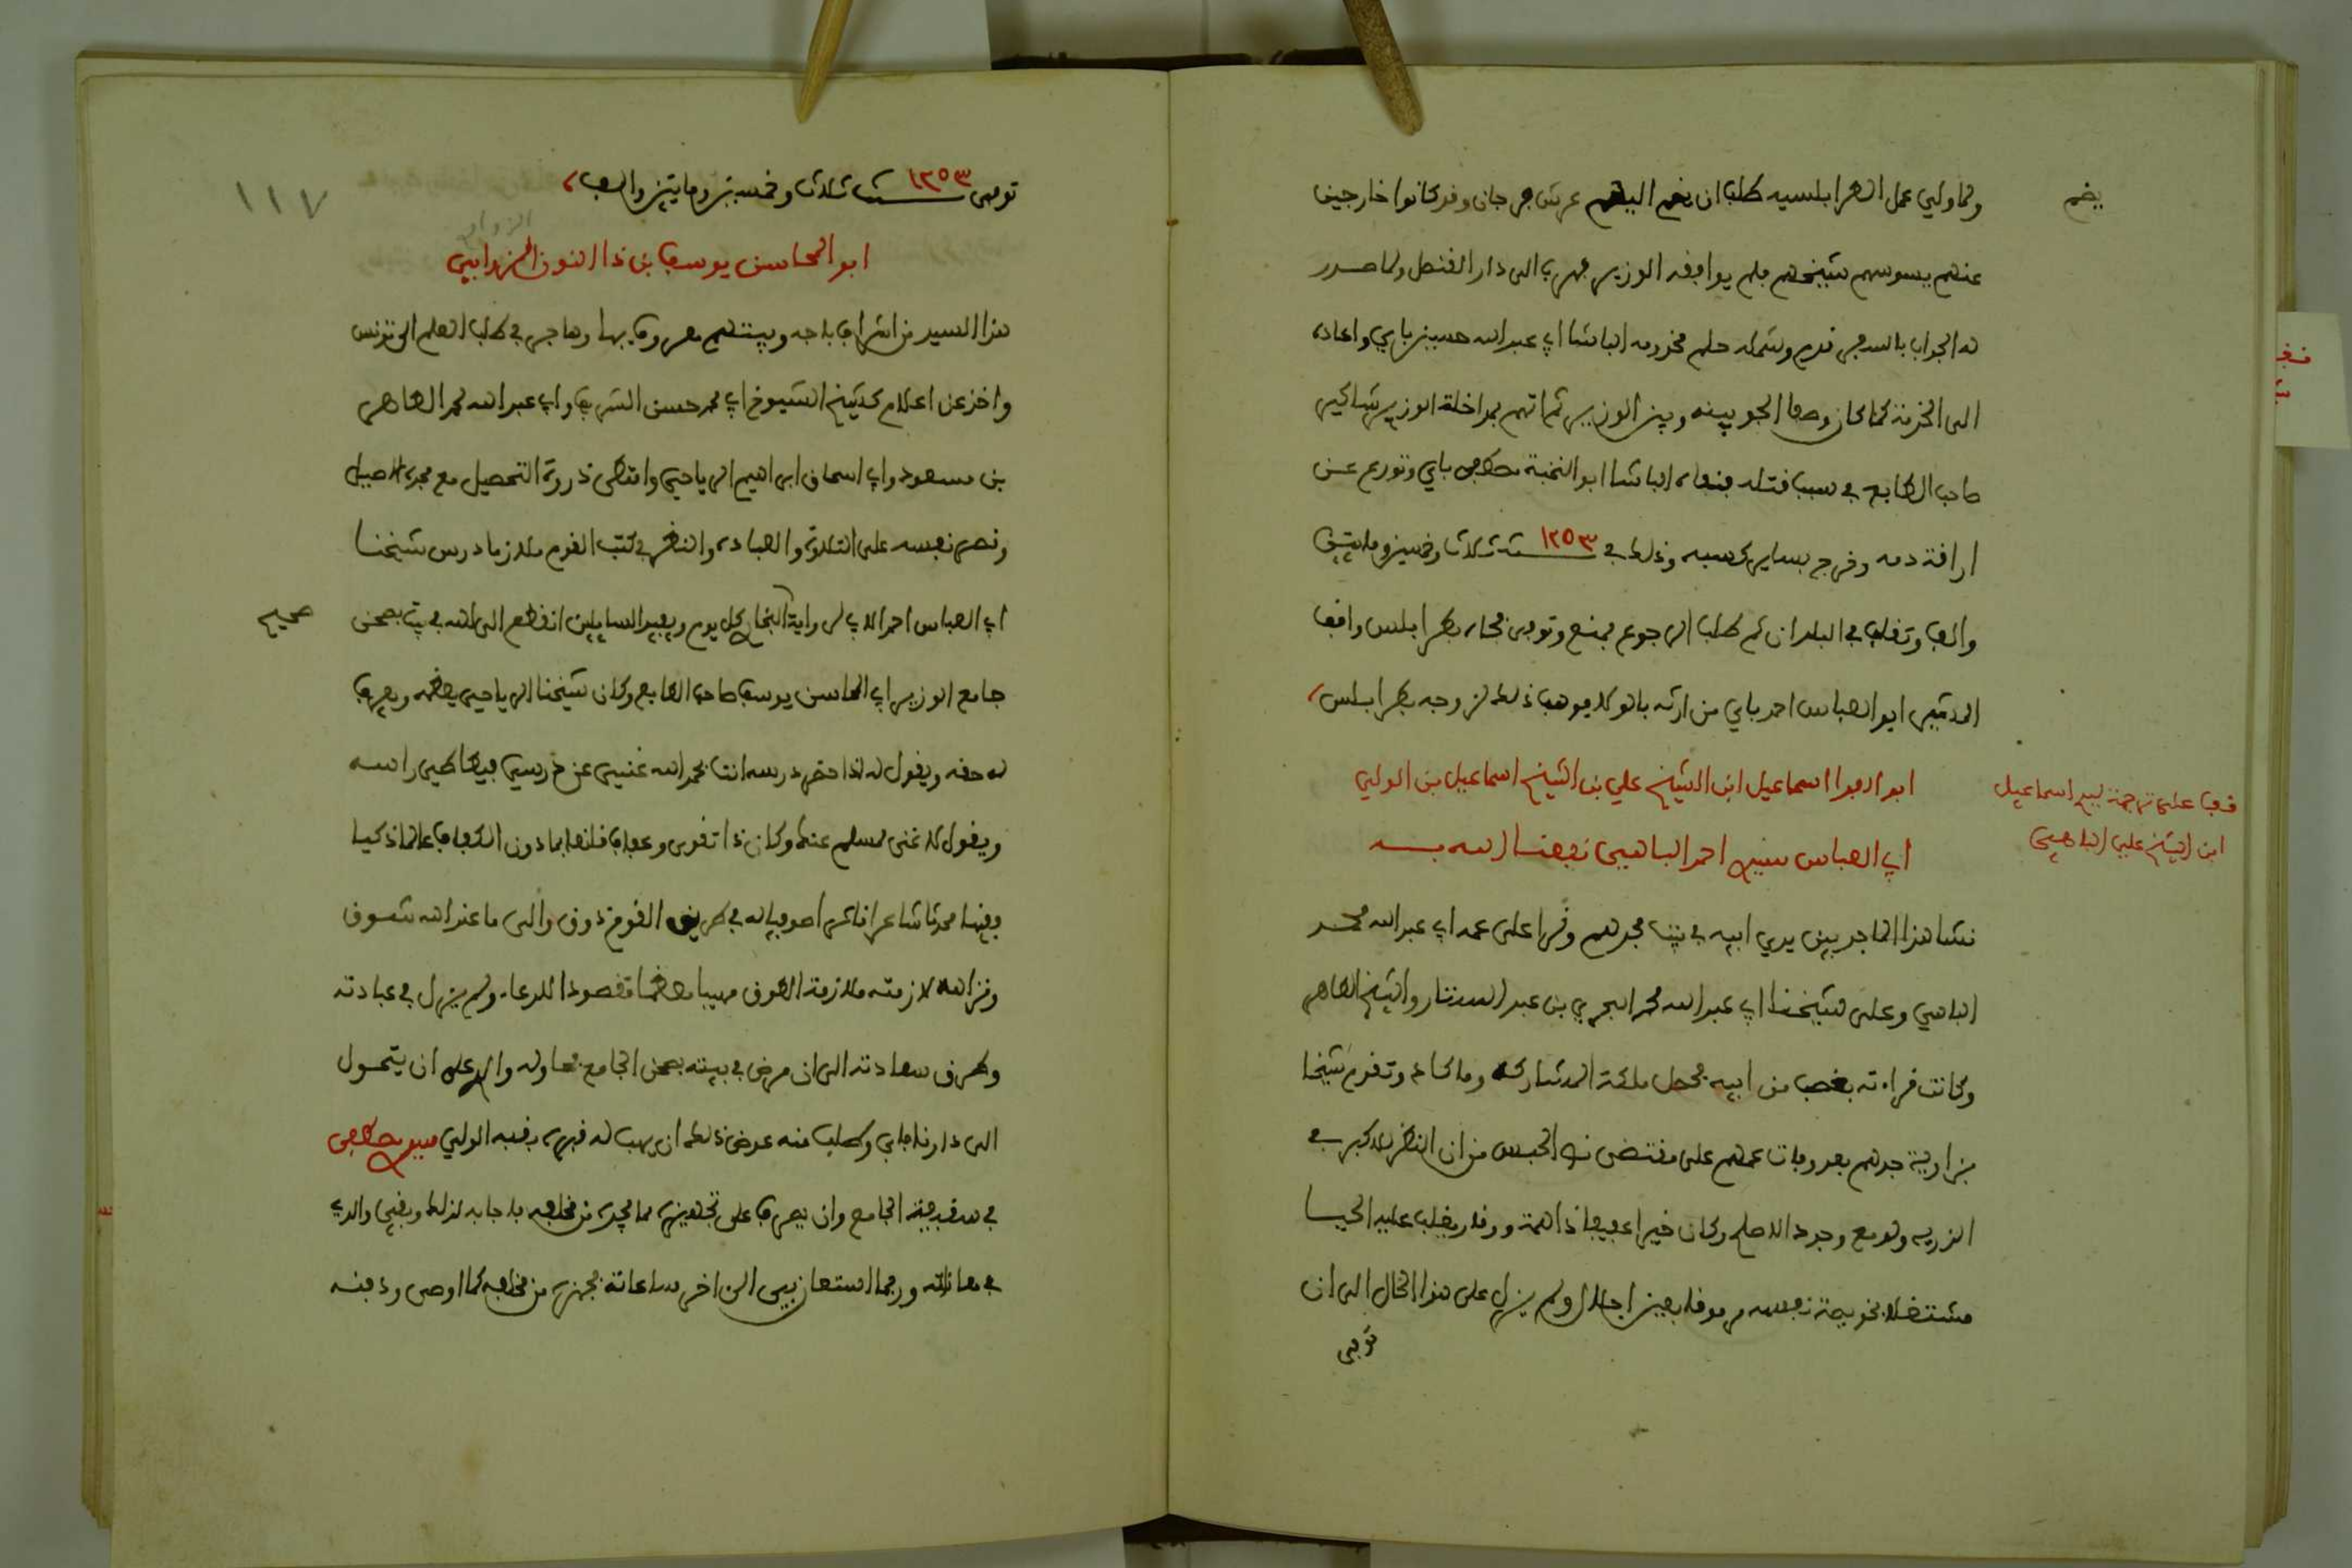 ولما ولي عمل الطرابلسيه طلب ان يضم اليهم عرش جرجان وقد كانوا خارجين
يضم
عنهم يسوسهم شيخهم فلم يوافقه الوزير فهرب الى دار القنصل ولما صدر
له الجواب بالسفر قدم وشمله حلم مخدومه الباشا ابي عبد الله حسين باي واعاده
الى الخدمة كما كان وصفا الجو بينه وبين الوزير ثم اتهم بمداخلة الوزير شاكير
صاحب الطابع في سبب قتله فنفاه الباشا ابو النخبة مصطفى باي وتورع عن
اراقة دمه وخرج بساير كسبه وذلك في سنة ١٢٥٣ ثلاث وخمسين ومايتين
والف وتقلب في البلدان ثم طلب الرجوع فمنع وتوفي فجاه بطرابلس واقف
المشير ابو العباس احمد باي من ارثه بالولا فوهب ذلك لزوجه بطرابلس
ابو الفدا اسماعيل ابن الشيخ علي بن الشيخ اسماعيل بن الولي
ابي العباس سيدي احمد الباهي نفعنا الله به
قف على ترجمة اسماعيل
ابن الشيخ علي الباهي
نشا هذا الماجد بين يدي ابيه في بيت مجدهم وقرا على عمه ابي عبد الله محمد
الباهي وعلى شيخنا ابي عبد الله محمد البحري بن عبد الستار والشيخ الطاهر
وكانت قراءته بغصب من ابيه فحصل ملكة المشاركة وما كاد وتقدم شيخا
بزاوية جدهم بعد وفات عمهم على مقتضى نص الحبس من ان النظر للاكبر في
الذريه ولو مع وجود الاصلح وكان خيرا عفيفا ذا همة ووقار يغلب عليه الحيا
مشتغلا بخويصة نفسه مرموقا بعين اجلال ولم يزل على هذا الحال الى ان
توفي
١١٧
توفي سنة ١٢٥٣ ثلاث وخمسين ومايتين والف
ابو المحاسن يوسف بن ذا النون الزوابي
هذا السيد من اشراف باجه وبيتهم معروف بها وهاجر في طلب العلم الى تونس
واخذ عن اعلام كشيخ الشيوخ ابي محمد حسن الشريف وابي عبد الله محمد الطاهر
بن مسعود وابي اسحاق ابراهيم الرياحي وامتطى ذروة التحصيل مع مجده الاصيل
وقصر نفسه على التلاوة والعبادة والنظر في كتب القوم ملازما درس شيخنا
ابي العباس احمد الابي لرواية البخاري كل يوم ويفيد السايلين انقطع الى الله في بيت بصحن
صحيح
جامع الوزير ابي المحاسن يوسف صاحب الطابع وكان شيخنا الرياحي يعظمه ويعرف
له حقه ويقول له اذا حضر درسه انت بحمد الله غني عن درسي فيطاطي راسه
ويقول لا غنى لمسلم عنك وكان ذا تقوى وعفاف قانعا بما دون الكفاف عالما ذكيا
فقيها محدثا شاعرا ناثرا صوفيا له في طريق القوم ذوق والى ما عند الله شوق
لازمته ملازمة الطوق مهيبا معظما مقصودا للدعا، ولم يزل في عبادته
وطرق سعادته الى ان مرض في بيته بصحن الجامع فعاوله والدي على ان يتحول
الى دارنا فابى وطلب منه عوض ذلك ان يهب له قبره بقبة الولي سيدي مصطفى
في سقيفة الجامع وان يصرف على تجهيزه مما يجده من مخلفه فاجابه لذلك وبقي والدي
في معاناته وربما استعان بي الى اخر ساعاته فجهزه من مخلفه كما اوصى ودفنه